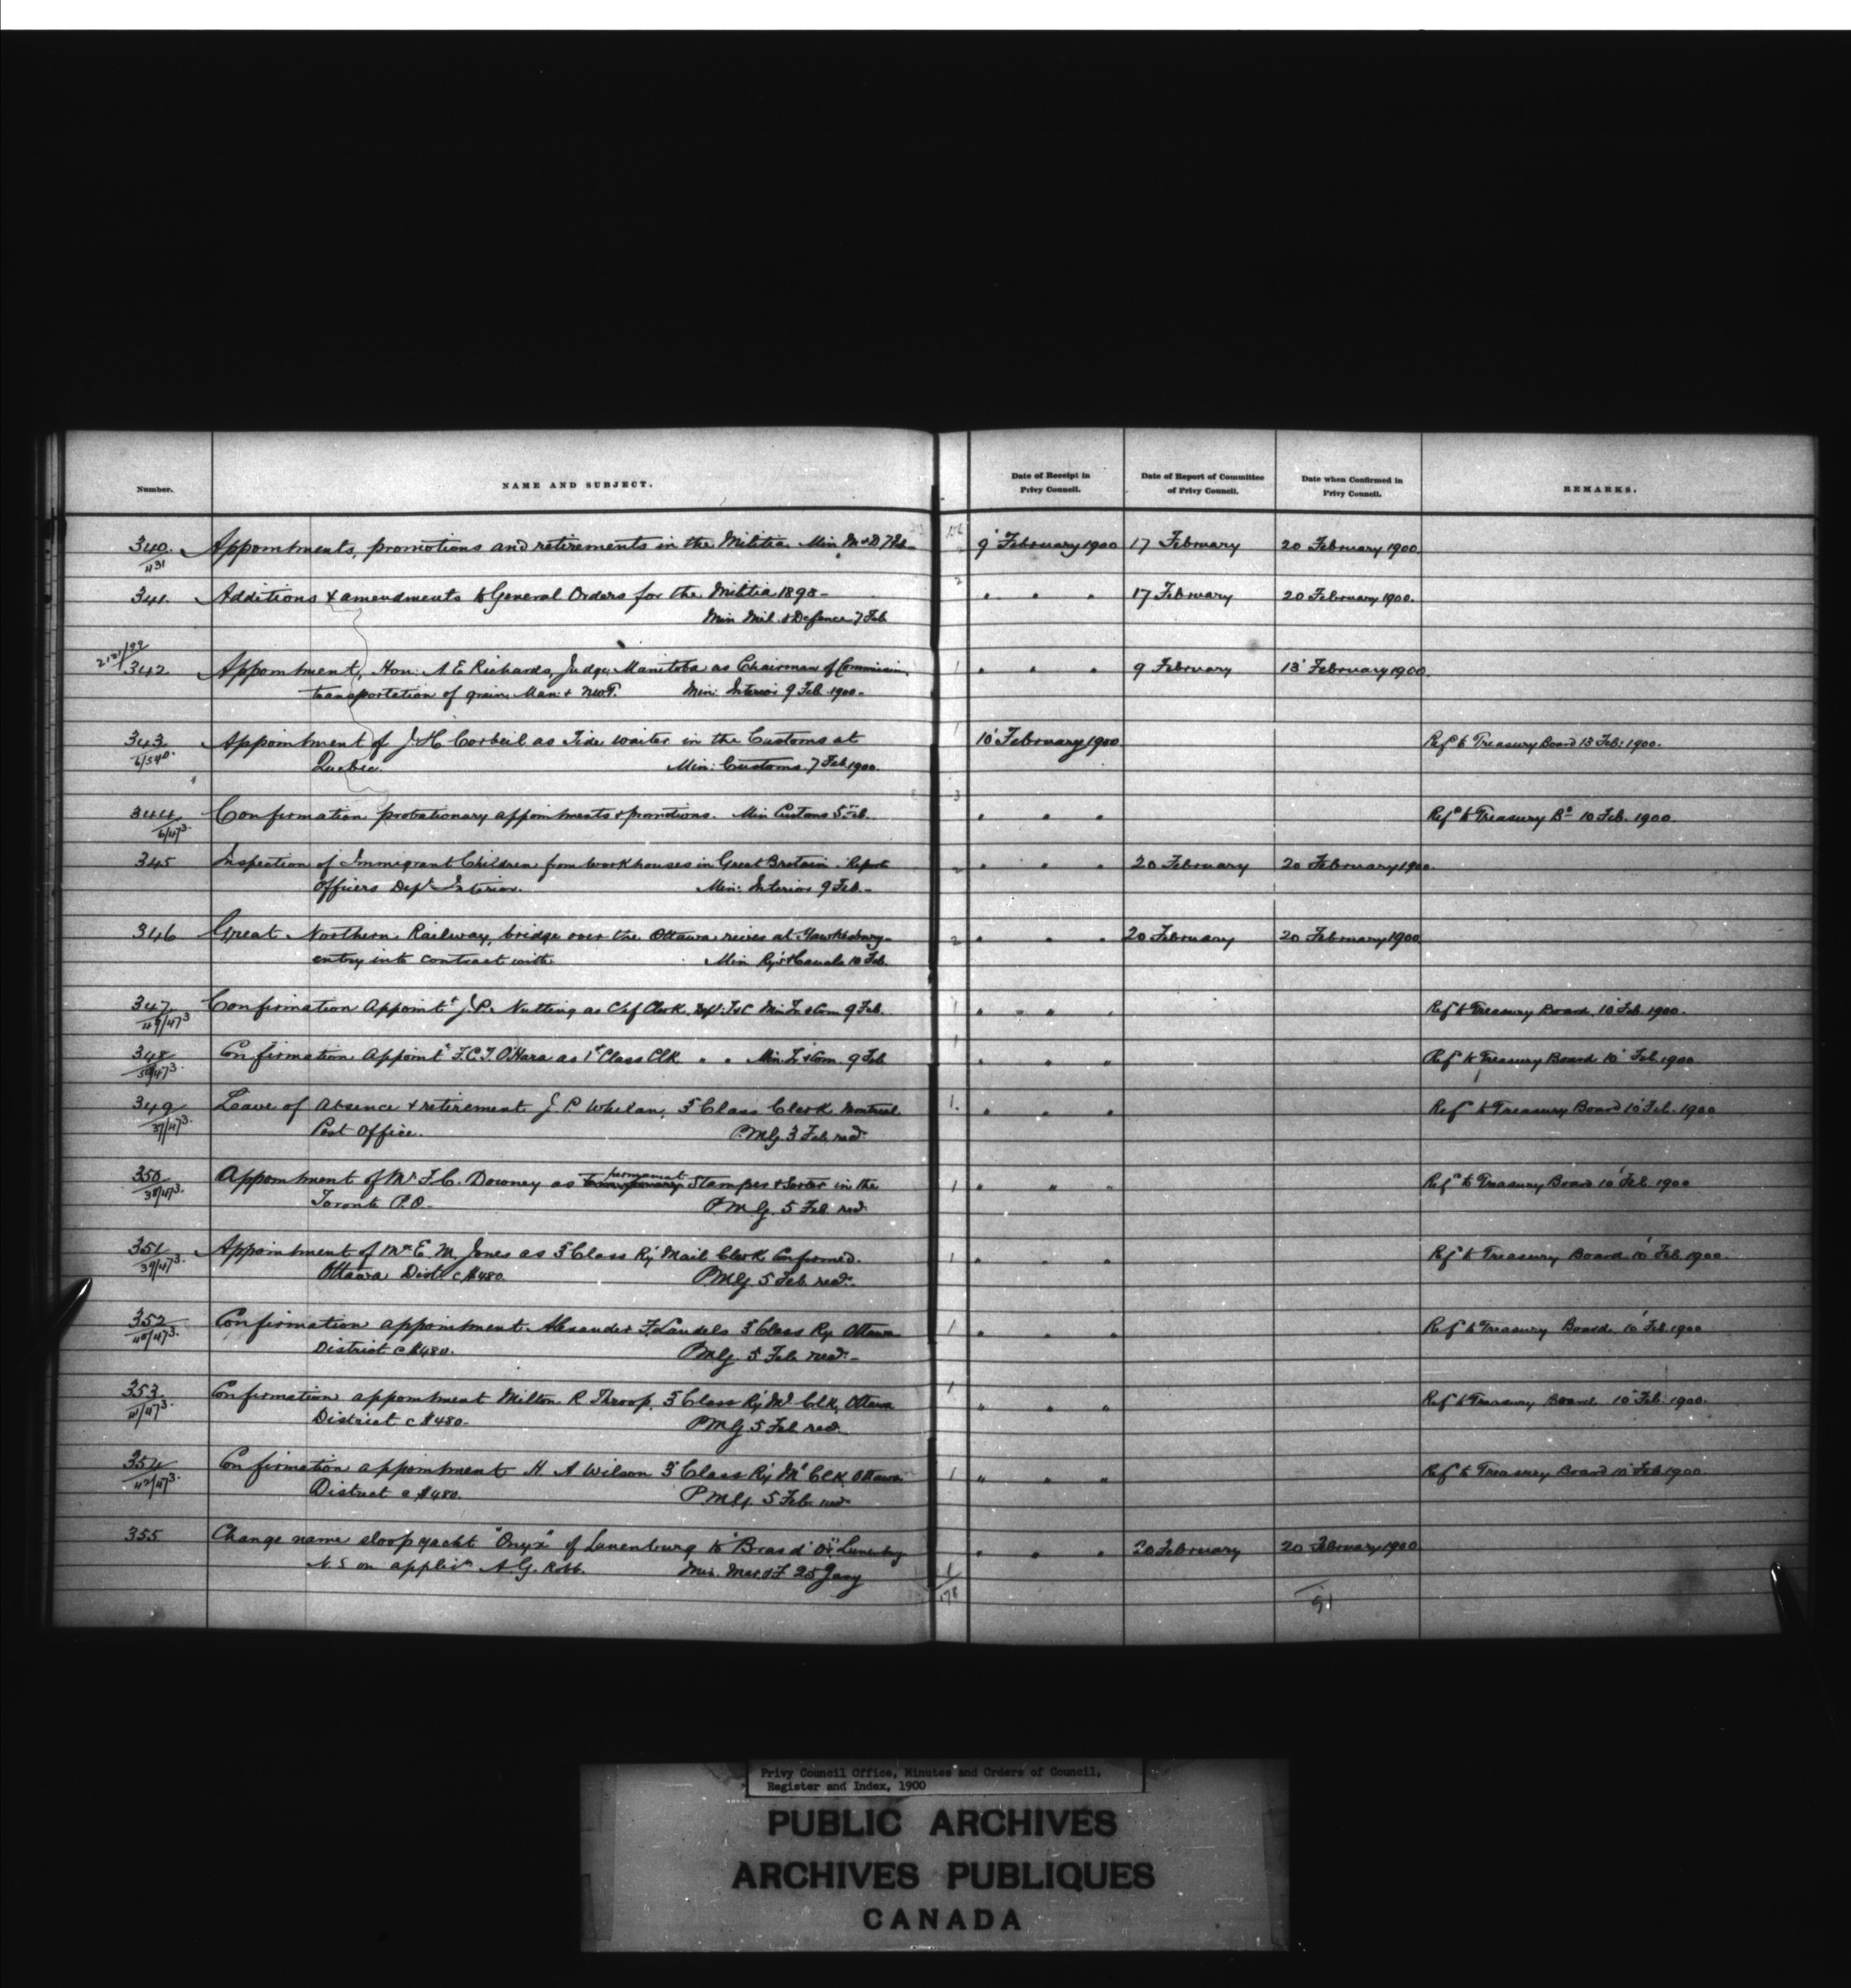 Number.
NAME AND SUBJECT.
Date of Receipt in Privy Council.
Date of Report of Committee of Privy Council.
Date when Confirmed in Privy Council.
REMARKS.
340. Appointments, promotions and retirements in the Militia. Min M & D 7 Feb 9' February 1900 17 February 20 February 1900.
341. Additions & amendments to General Orders for the Militia 1898 - " " " 17 February 20 February 1900.
Min Mil. & Defence 7 Feb
342 Appointment, Hon: A E Richards, Judge, Manitoba as Chairman of Commission, " " " 9 February 13' February 1900.
transportation of grain, Man: & NWT. Min: Interior 9 Feb. 1900 -
343 Appointment of J. H. Corbeil as Tide waiter in the Customs at 10' February 1900 Refd to Treasury Board 13 Feb: 1900.
Quebec. Min: Customs. 7 Feb 1900.
344 Confirmation probationary appointments & promotions. Min Customs 5 Feb. " " " Refd to Treasury Bd 10 Feb. 1900
6/473.
345 Inspection of Immigrant Children from workhouses in Great Britain. Report " " " 20 February 20 February 1900.
Officers Dept. Interior. Min: Interior 9 Feb. -
346 Great Northern Railway, bridge over the Ottawa river at Hawkesbury - " " " 20 February 20 February 1900
entry into contract with. Min Rys & Canals 10 Feb.
347 Confirmation Appointt J. P. Nutting as Chf Clerk, Dept: T & C Min Tr & Com 9 Feb. " " " Refd to Treasury Board. 10' Feb. 1900.
49/473
348 Confirmation Appointt F. C. T. O'Hara as 1st Class Clk " " Min. Tr & Com. 9 Feb " " " Refd to Treasury Board 10' Feb. 1900
50/473.
349 Leave of Absence & retirement J. P. Whelan, 3 Class Clerk Montreal " " " Refd to Treasury Board 10' Feb. 1900
37/473. Post Office. P.M.G. 3 Feb. recd.
350 Appointment of Mr F. C. Downey as temporary permanent Stamper & Sorter in the " " " Refd to Treasury Board 10' Feb. 1900
38/473. Toronto P.O. - P.M.G. 5 Feb. recd.
351 Appointment of Mr E. M. Jones as 3 Class Ry Mail Clerk Confirmed. " " " Refd to Treasury Board 10' Feb. 1900.
39/473. Ottawa Dist. c $480. PMG. 5 Feb. recd.
352 Confirmation appointment Alexander F. Landels 3 Class Ry Ottawa " " " Refd to Treasury Board, 10' Feb. 1900
40/473. District c $480. PMG. 5 Feb. recd. -
353 Confirmation appointment Milton R. Throop. 3 Class Ry Ml Clk, Ottawa " " " Refd to Treasury Board 10' Feb. 1900.
41/473. District c $480. PMG 5 Feb recd.
354 Confirmation appointment H. A Wilson 3 Class Ry Ml Clk Ottawa " " " Refd to Treasury Board 10' Feb 1900
42/473. District c $480. PMG. 5 Feb. recd.
355 Change name sloop yacht "Onyx" of Lunenburg to "Bras d'Or" Lunenburg " " " 20 February 20 February 1900
N.S on applin A. G. Robb. Min. Mar. & F 25 Jany
178
91
Privy Council Office, Minutes and Orders of Council,
Register and Index, 1900
PUBLIC ARCHIVES
ARCHIVES PUBLIQUES
CANADA